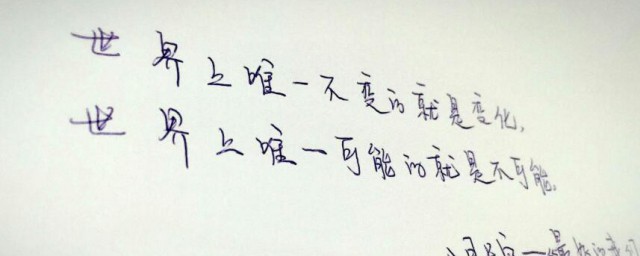 世界上唯一不变的就是变化,
世界上唯一可能的就是不可能。
一最